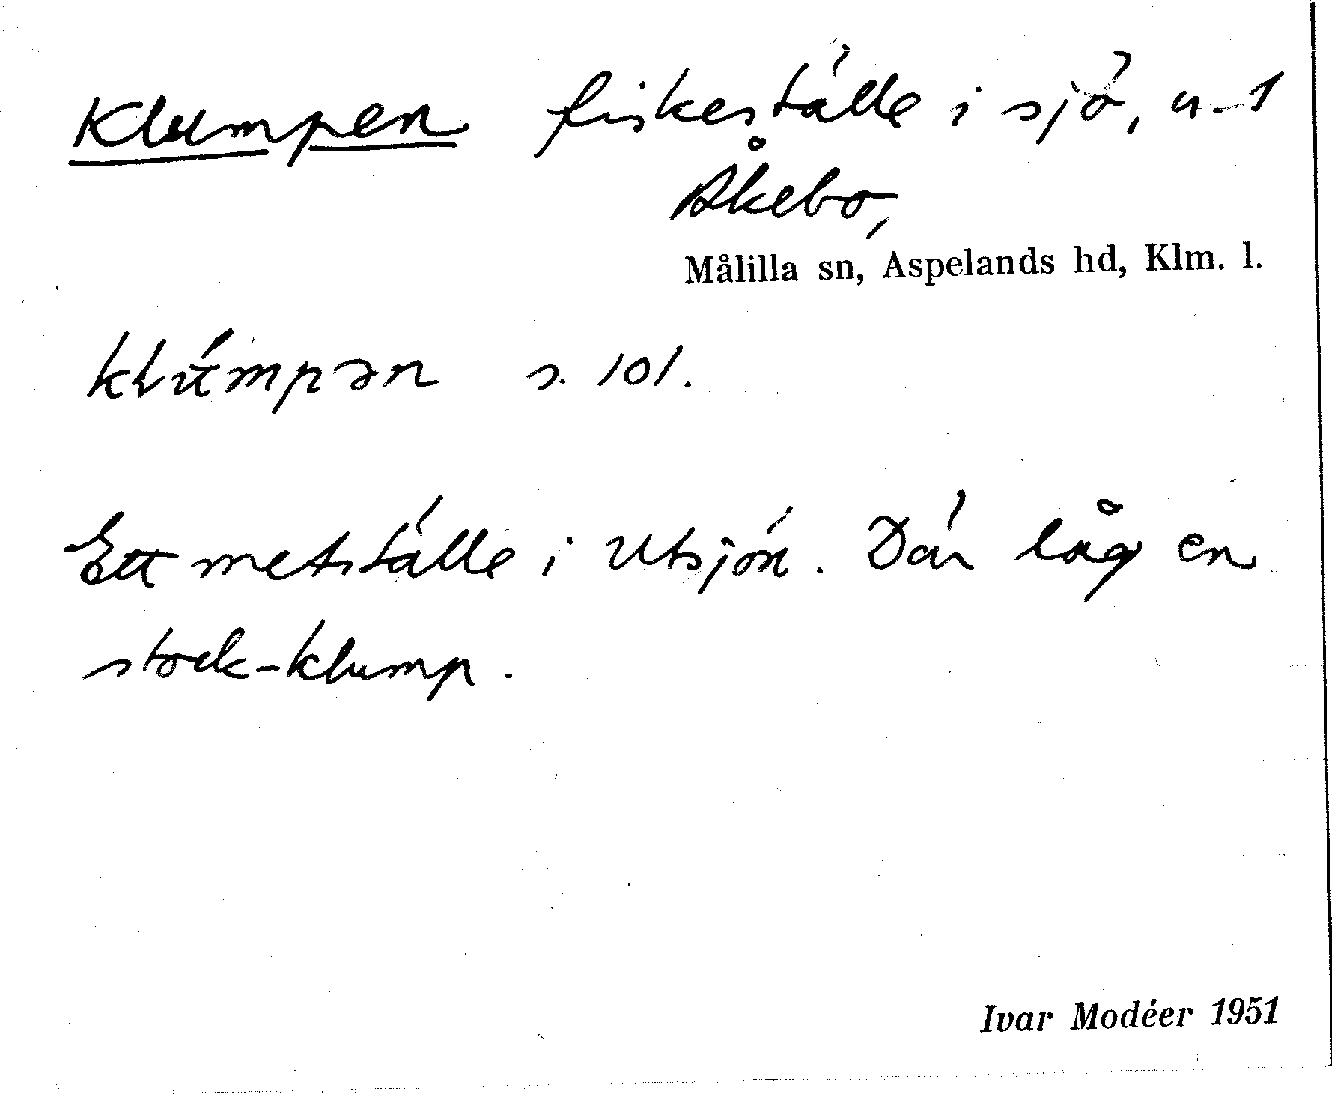 Klumpen fiskeställe i sjö, n-1
Åkebo,
Målilla sn, Aspelands hd, Klm. l.
klúmpən s. 101.
Ett metställe i Utsjön. Där låg en
stock-klump.
Ivar Modéer 1951